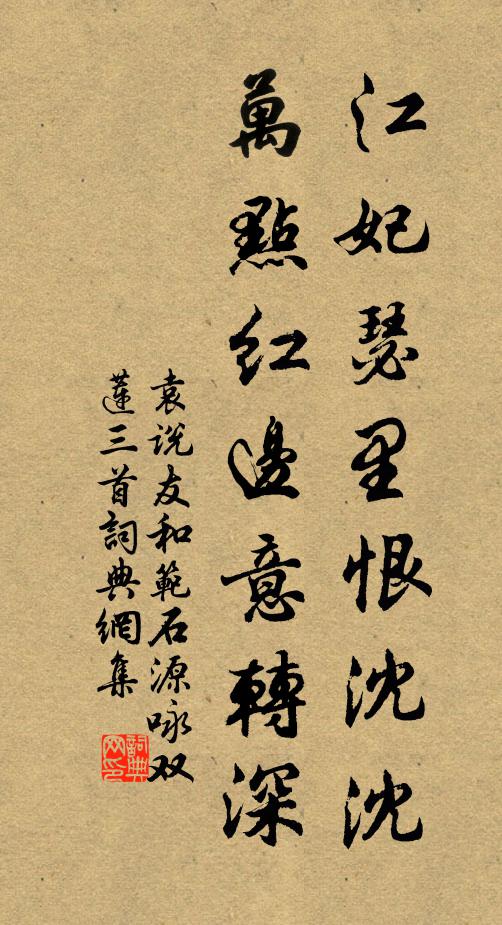 江妃瑟里恨沈沈
萬點紅邊意轉深
袁说友和範石源咏双
蓮三首詞典網集
詞典
网印